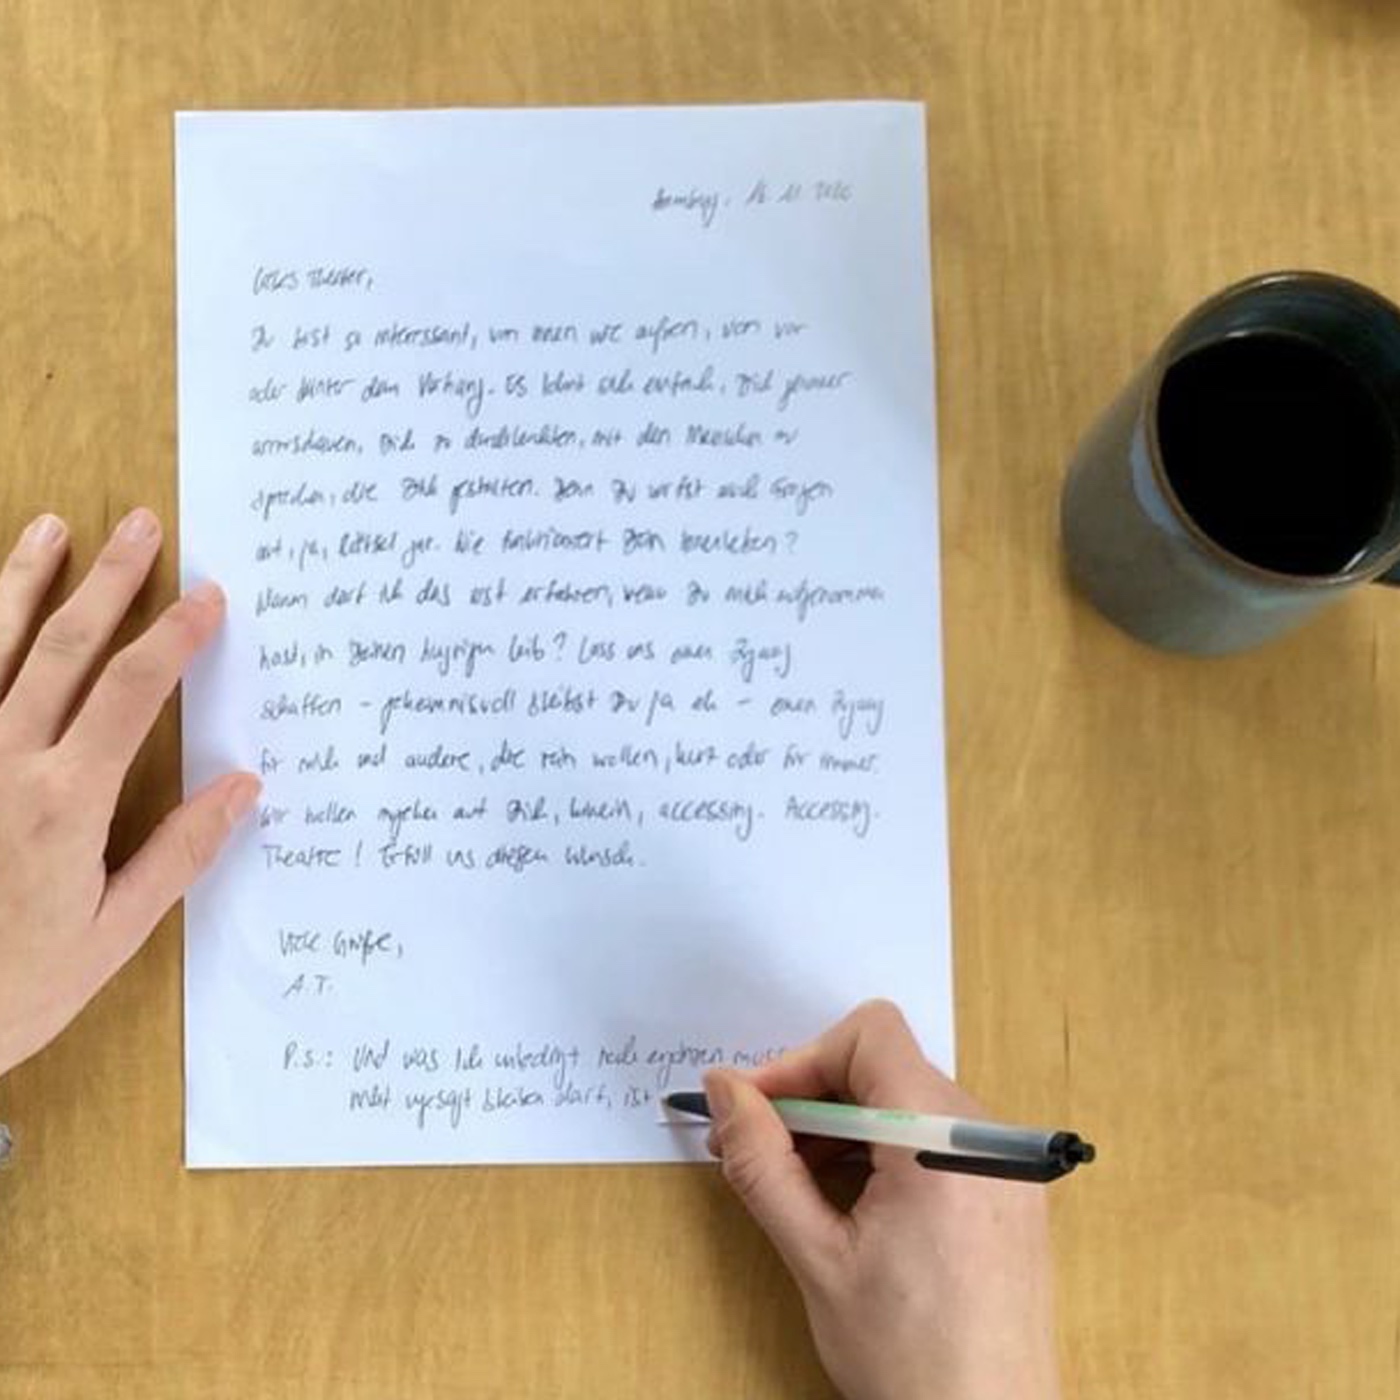 Hamburg, 16.11.2020
Liebes Theater,
Du bist so interessant, von innen wie außen, von vor
oder hinter dem Vorhang. Es lohnt sich einfach, Dich genauer
anzuschauen, Dich zu durchleuchten, mit den Menschen zu
sprechen, die Dich gestalten. Denn Du wirfst auch Fragen
auf, ja, Rätsel gar. Wie funktioniert Dein Innenleben?
Wann darf ich das erst erfahren, wenn Du mich aufgenommen
hast, in Deinen Leib? Lass uns einen Zugang
schaffen – geheimnisvoll bleibst Du ja eh – einen Zugang
für mich und andere, die rein wollen, kurz oder für immer.
Wir wollen zugehen auf Dich, hinein, accessing. Accessing.
Theatre! Erfüll uns diesen Wunsch.
Viele Grüße,
A.T.
P.S.: Und was ich unbedingt noch ergänzen muss
nicht ungesagt bleiben darf, ist